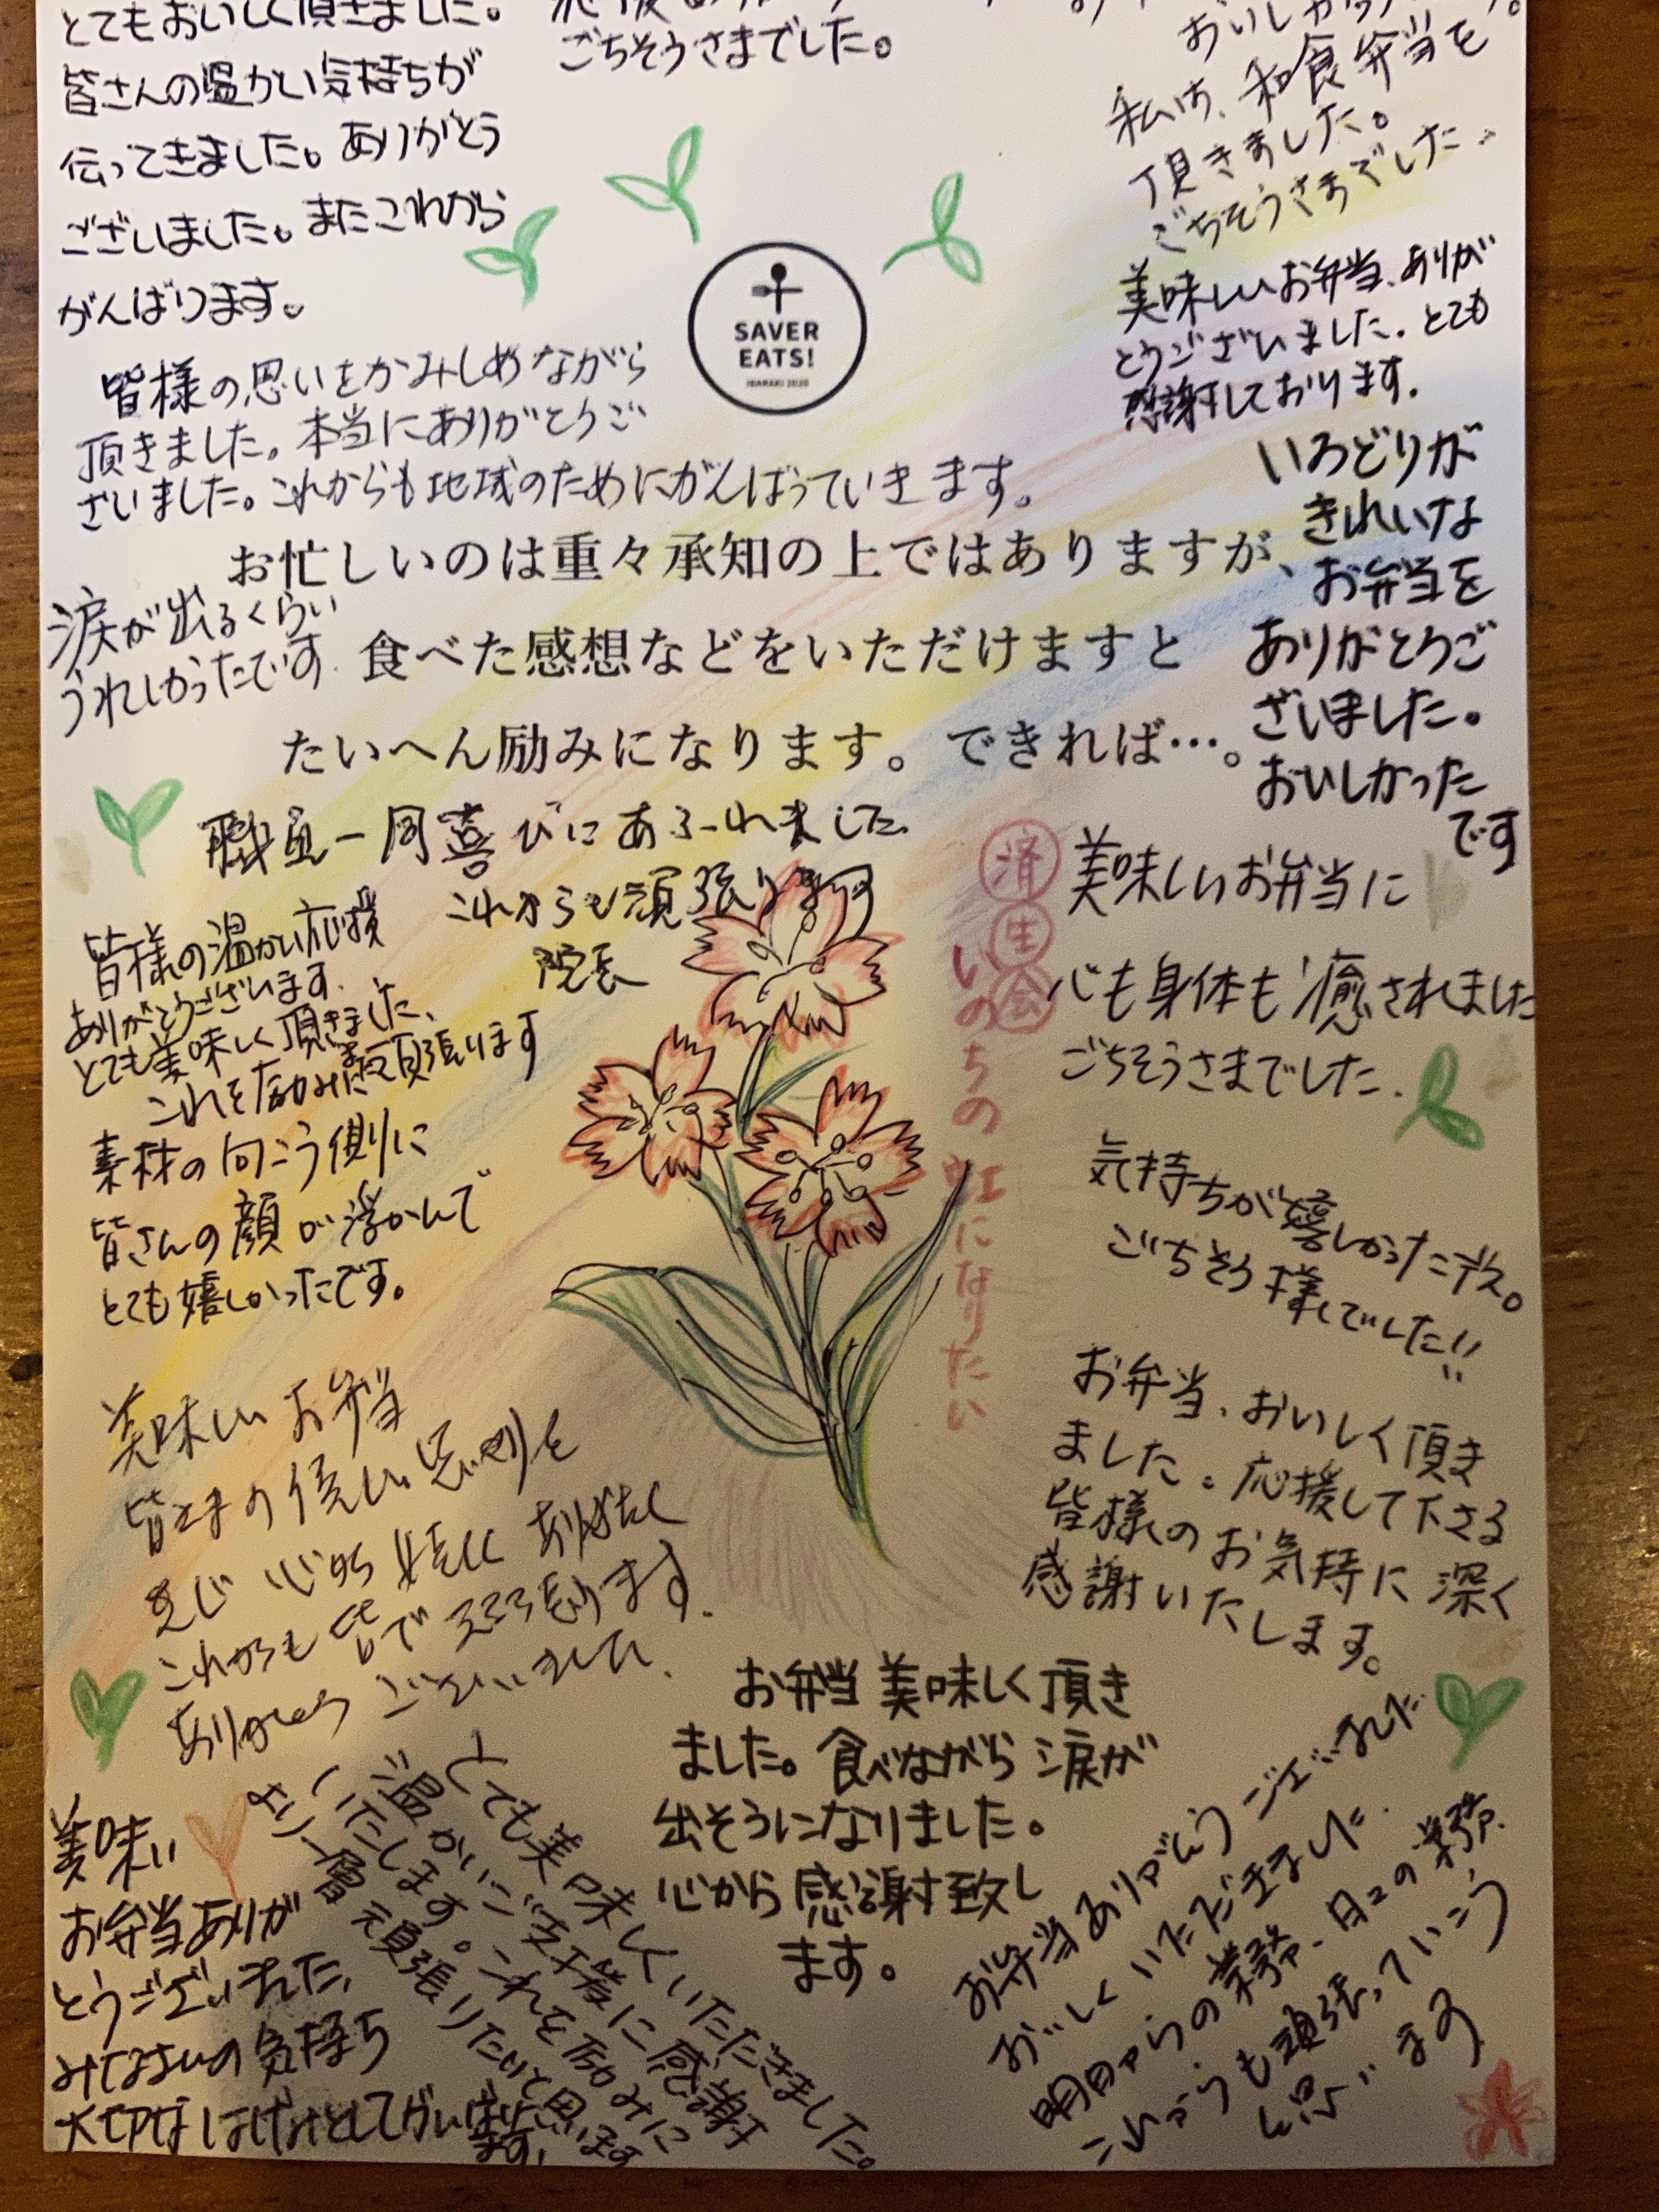 とてもおいしく頂きました。
皆さんの温かい気持ちが
伝ってきました。ありがとう
ございました。またこれから
がんばります。
ごちそうさまでした。
私は、和食弁当を
頂きました。
ごちそうさまでした。
SAVER
EATS!
IBARAKI 2020
美味しいお弁当、ありが
とうございました。とても
感謝しております。
皆様の思いをかみしめながら
頂きました。本当にありがとうご
ざいました。これからも地域のためにがんばっていきます。
いろどりが
きれいな
お弁当を
ありがとうご
ざいました。
おいしかった
です
お忙しいのは重々承知の上ではありますが、
食べた感想などをいただけますと
たいへん励みになります。できれば…。
涙が出るくらい
うれしかったです
職員一同喜びにあふれました。
これからも頑張ります
院長
皆様の温かい応援
ありがとうございます。
とても美味しく頂きました、
これを励みに頑張ります
素材の向こう側に
皆さんの顔が浮かんで
とても嬉しかったです。
済生会
いのちの虹になりたい
美味しいお弁当に
心も身体も癒されました
ごちそうさまでした。
気持ちが嬉しかったデス。
ごちそう様でした!!
お弁当、おいしく頂き
ました。応援して下さる
皆様のお気持に深く
感謝いたします。
美味しいお弁当
皆さまの優しい思いやりを
これからも皆で頑張ります。
ありがとうございました。
お弁当美味しく頂き
ました。食べながら涙が
出そうになりました。
心から感謝致し
ます。
美味い
お弁当ありが
とうございました、
みなさいの気持ち
とても美味しくいただきました。
温かいご支援に感謝
いたします。これを励みに
より一層頑張りたいと思います
お弁当ありがとうございました
おいしくいただきました。
明日からの業務、日々の業務、
これからも頑張っていこう
と思います